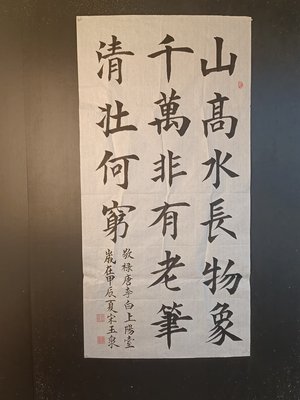 山髙水長物象
千萬非有老筆
清壯何窮
敬禄唐李白上陽臺
歲在甲辰夏宋玉泉